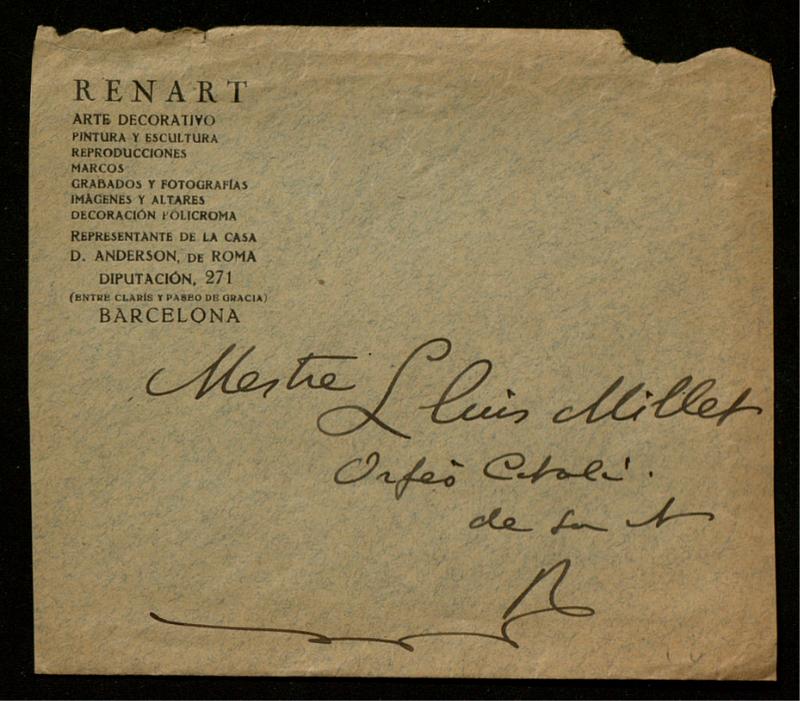 RENART
ARTE DECORATIVO
PINTURA Y ESCULTURA
REPRODUCCIONES
MARCOS
GRABADOS Y FOTOGRAFÍAS
IMÁGENES Y ALTARES
DECORACIÓN POLICROMA
REPRESENTANTE DE LA CASA
D. ANDERSON, DE ROMA
DIPUTACIÓN, 271
(ENTRE CLARÍS Y PASEO DE GRACIA)
BARCELONA
Mestre Lluis Millet
Orfeó Català.
de